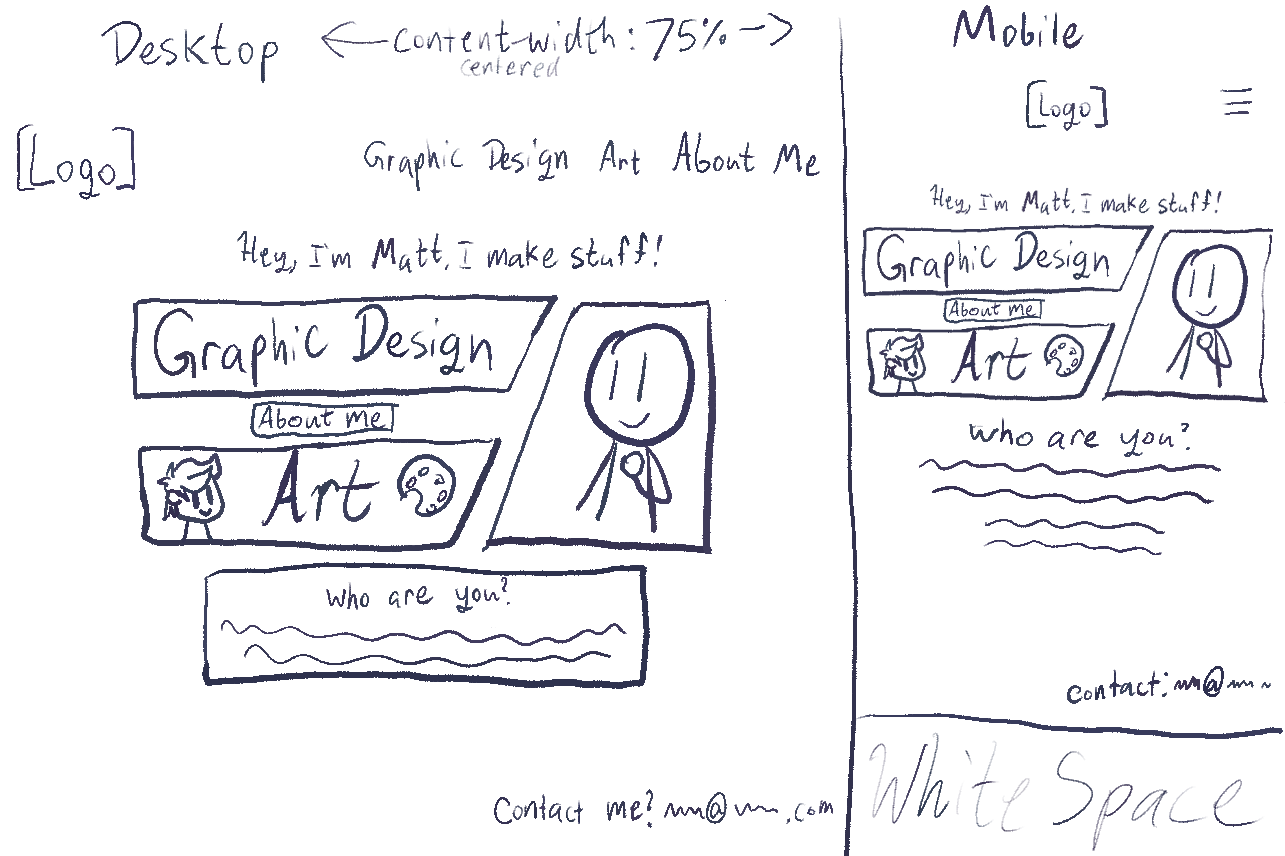 Desktop
content-width: 75%
centered
[Logo]
Graphic Design Art About Me
Hey, I'm Matt, I make stuff!
Graphic Design
About me
Art
Who are you?
Contact me? @ .com
Mobile
[Logo]
Hey, I'm Matt, I make stuff!
Graphic Design
About me
Art
Who are you?
Contact: @
White Space